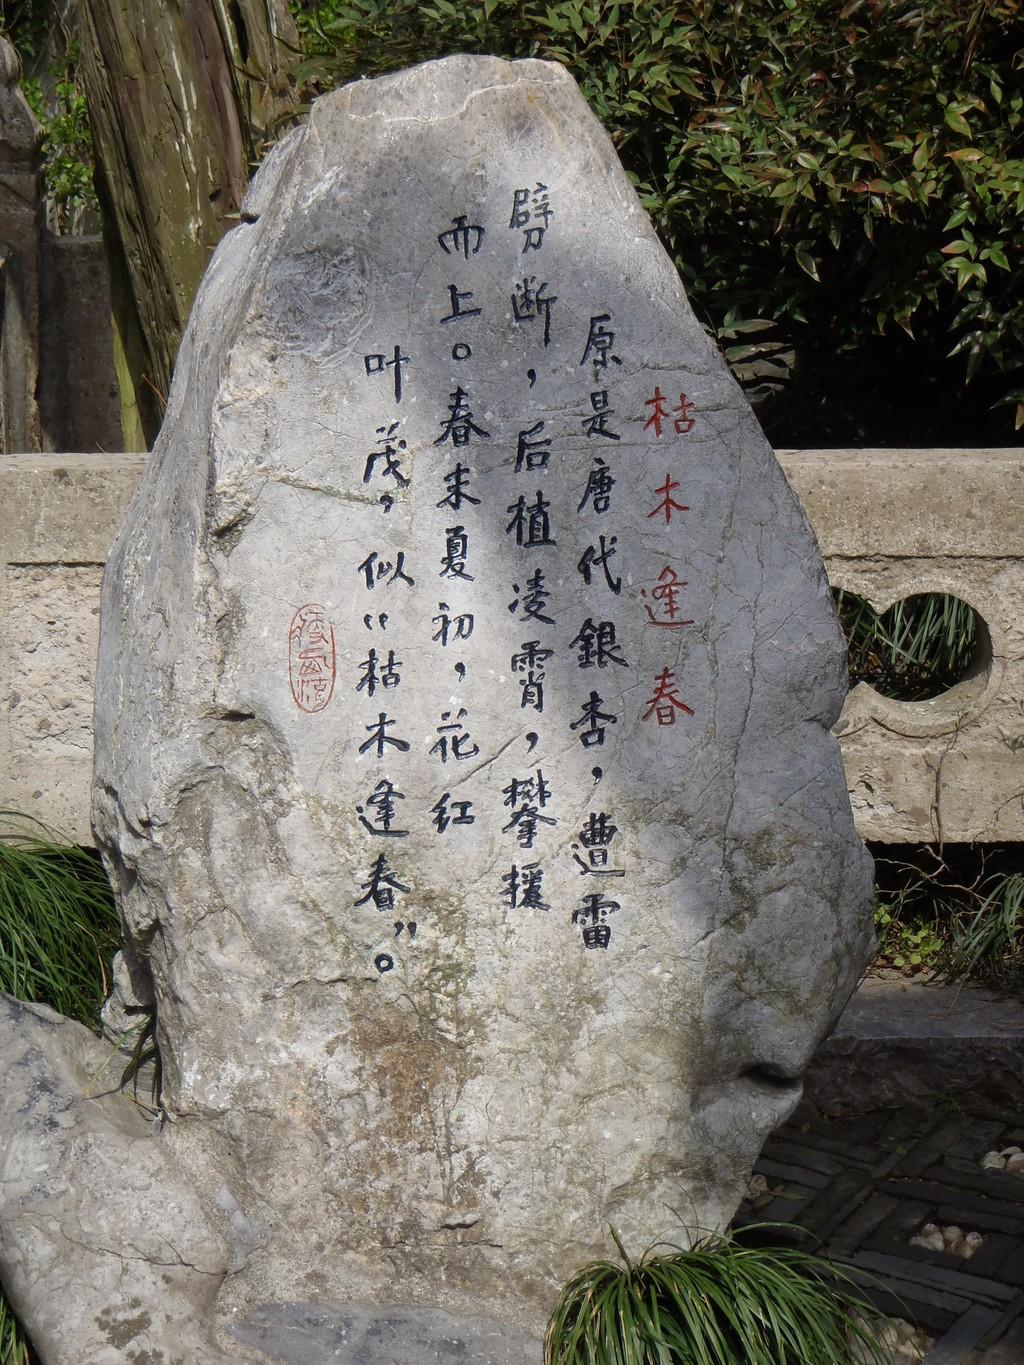 枯木逢春
原是唐代銀杏，遭雷
劈断，后植凌霄，攀援
而上。春末夏初，花红
叶茂，似“枯木逢春”。